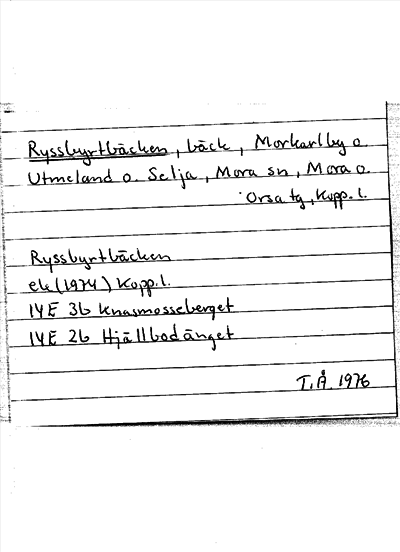 Ryssbyrtbäcken, bäck, Morkarlby o.
Utmeland o. Selja, Mora sn, Mora o.
Orsa tg, Kopp. l.
Ryssbyrtbäcken
ek (1974) Kopp. l.
14E 3b Knasmosseberget
14E 2b Hjällbodänget
T.Å 1976